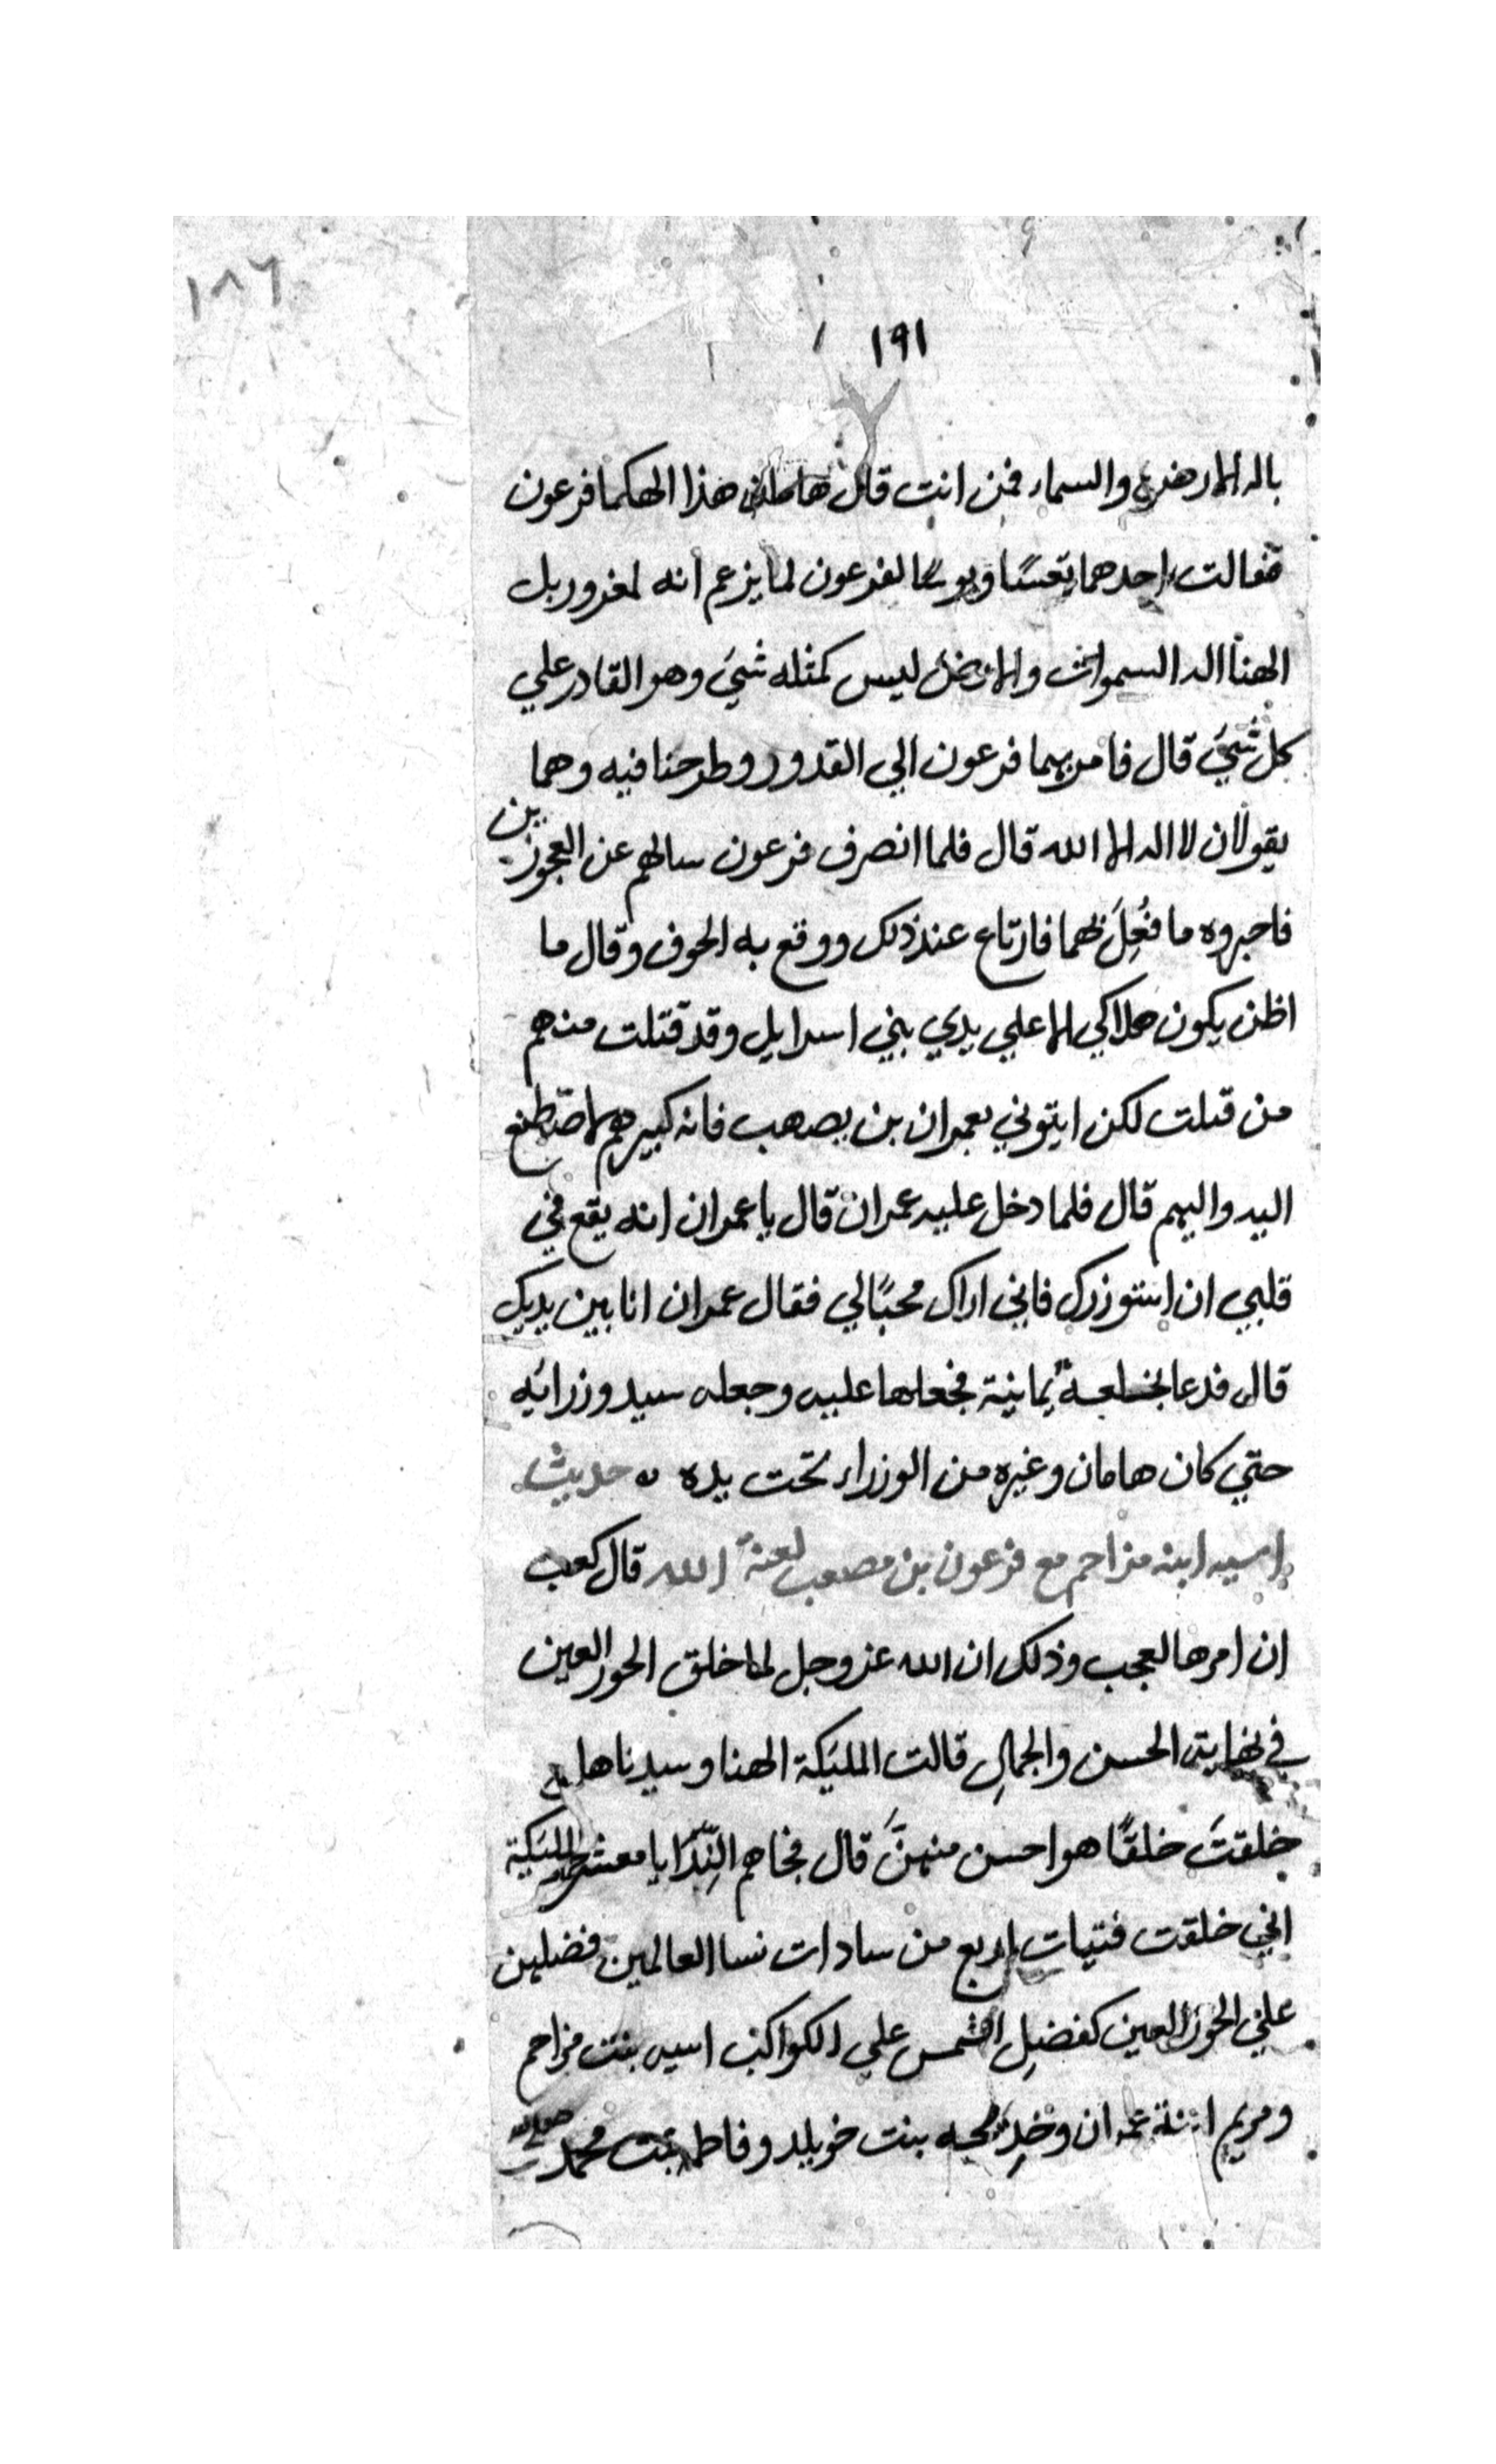 ١٨٦
١٩١
باله الارض والسماء فمن انت قال هامان هذا الهكما فرعون
فقالت احدهما تعسًا وبوسًا لفرعون لما يزعم انه لمغرور بل
الهنا اله السموات والارض ليس كمثله شيَ وهو القادر علي
كل شيَ قال فامر بهما فرعون الي القدور وطرحنا فيه وهما
يقولان لا اله الا الله قال فلما انصرف فرعون سالهم عن العجوزين
فاخبروه ما فُعِلَ بهما فارتاع عند ذلك ووقع به الخوف وقال ما
اظن يكون هلاكي الا علي يدي بني اسرايل وقد قتلت منهم
من قتلت لكن ايتوني بعمران بن يصهب فانه كبيرهم لاصطنع
اليه واليهم قال فلما دخل عليه عمران قال يا عمران انه يقع في
قلبي ان استوزرك فاني اراك محبًا لي فقال عمران انا بين يديك
قال فدعا بخلعةً يمانية فجعلها عليه وجعله سيد وزرائه
حتي كان هامان وغيره من الوزراء تحت يده ه حديث
اسيه ابنه مزاحم مع فرعون بن مصعب لعنهُ الله قال كعب
ان امرها لعجب وذلك ان الله عز وجل لما خلق الحور العين
في نهايت الحسن والجمالِ قالت المليكة الهنا وسيدنا هل
خلقتَ خلقًا هو احسن منهنَّ قال فجاهم النِّدَا يا معشر المليكة
اني خلقت فتيات اربع من سادات نسا العالمين فضلهن
علي الحور العين كفضلِ الشمس علي الكواكب اسيه بنت مزاحم
ومريم ابنة عمران وخدِيجه بنت خويلد وفاطمة بنت محمد